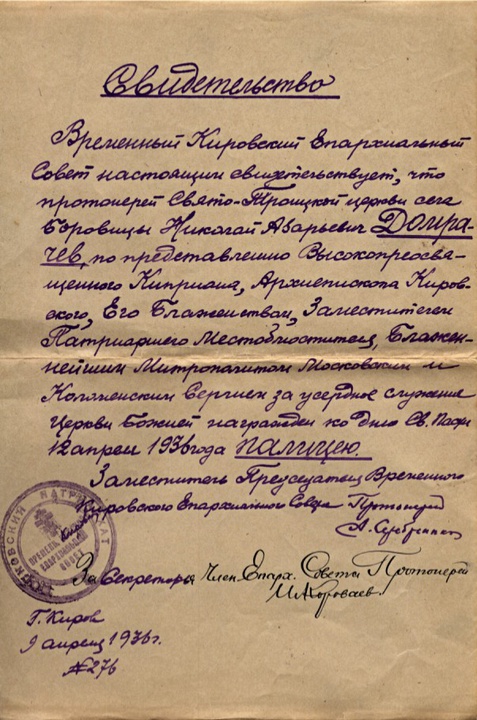 Свидетельство
Временный Кировский Епархиальный
Совет настоящим свидетельствует, что
протоиерей Свято-Троицкой церкви села
Боровицы Николай Азарьевич Домра-
чев, по представлению Высокопреосвя-
щенного Киприана, Архиепископа Киров-
ского, Его Блаженством, Заместителем
Патриаршего Местоблюстителя, Блажен-
нейшим Митрополитом Московским и
Коломенским Сергием за усердное служение
Церкви Божией награжден ко дню Св. Пасхи
12 апреля 1936 года палицею.
Заместитель Председателя Временного
Кировского Епархиального Совета Протоиерей
А. Серебренников
За Секретаря Член Епарх. Совета Протоиерей
И. Короваев.
Г. Киров
9 апреля 1936 г.
№ 276
МОСКОВСКИЙ ПАТРИАРХАТ
ЕПАРХИАЛЬНЫЙ
СОВЕТ